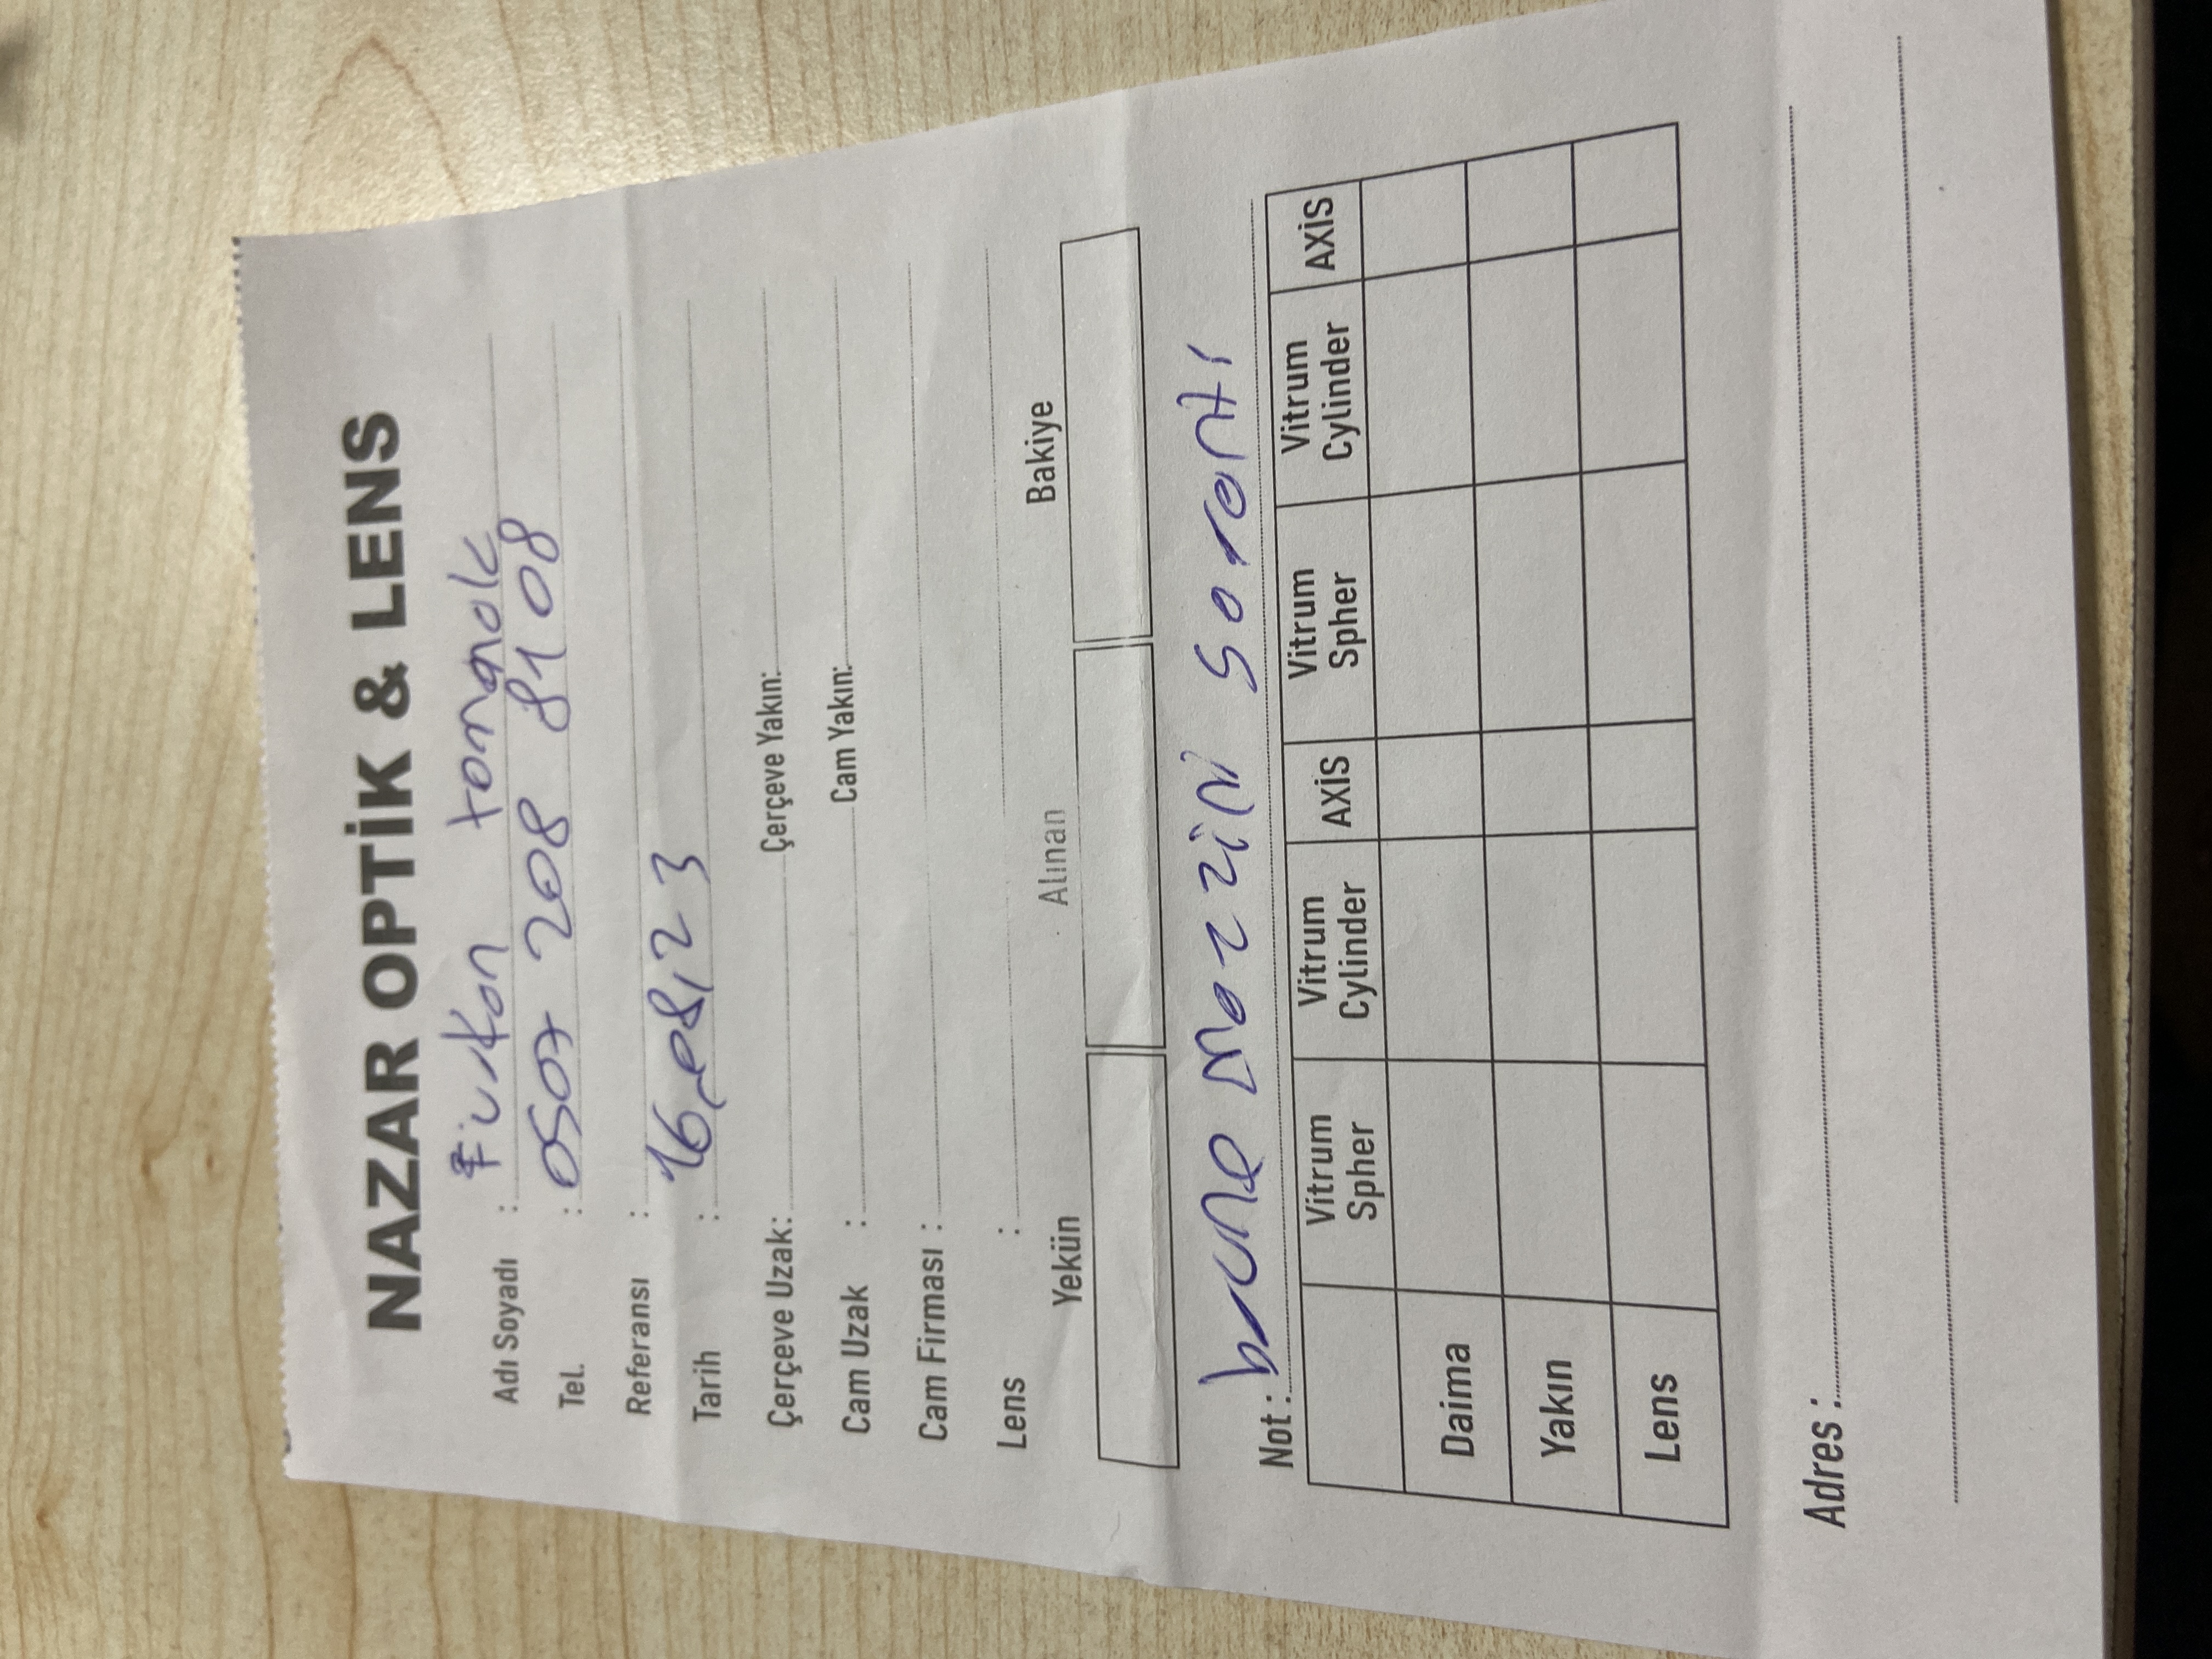 NAZAR OPTİK & LENS
Adı Soyadı : Furkan tommok
Tel. : 0507 208 8108
Referansı :
Tarih : 16,08,23
Çerçeve Uzak: Çerçeve Yakın:
Cam Uzak : Cam Yakın:
Cam Firması :
Lens :
Yekün Alınan Bakiye
Not : brune mazzini garanti
Vitrum Spher Vitrum Cylinder AXİS Vitrum Spher Vitrum Cylinder AXİS
Daima
Yakın
Lens
Adres :